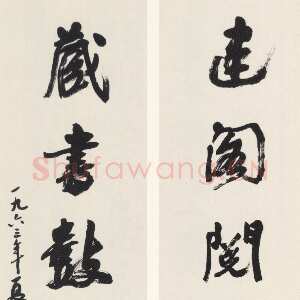 建阁閱
藏書鼓
一九六三年夏
Shufawang.CN